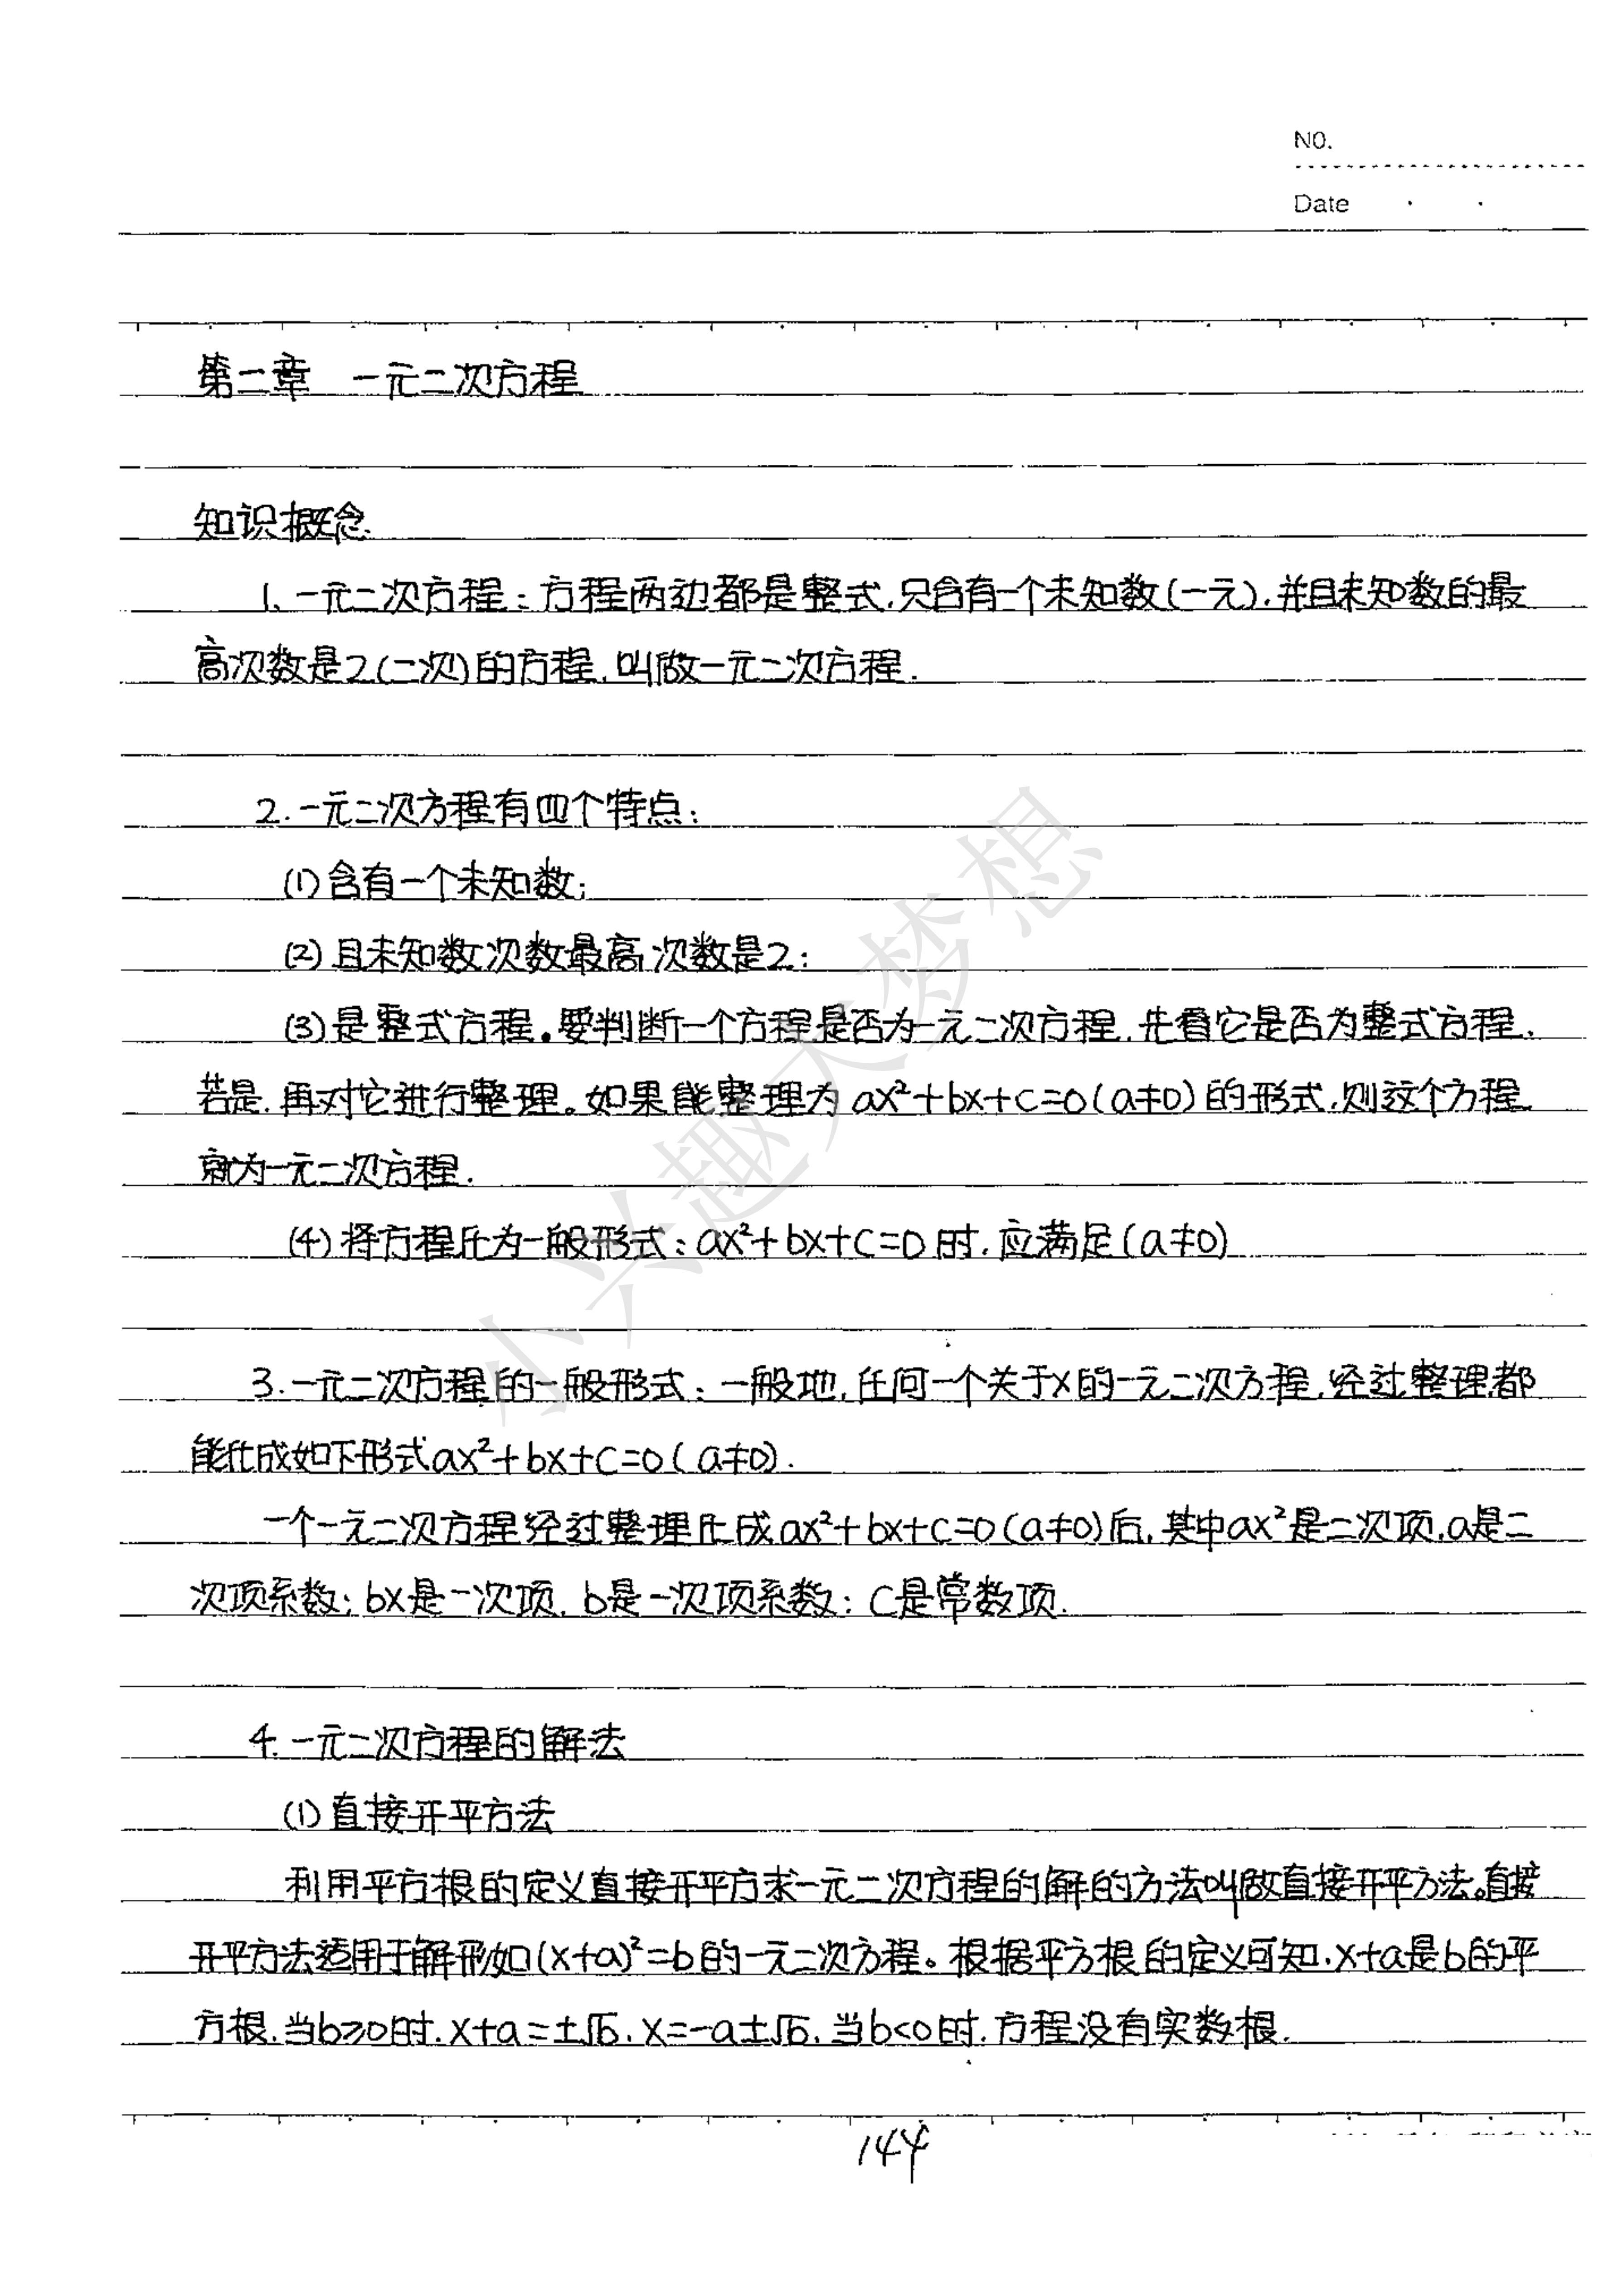 NO.
Date
第二章 一元二次方程
知识概念
1. 一元二次方程:方程两边都是整式,只含有一个未知数(一元),并且未知数的最
高次数是2(二次)的方程,叫做一元二次方程.
2.一元二次方程有四个特点:
(1)含有一个未知数;
(2)且未知数次数最高次数是2;
(3)是整式方程。要判断一个方程是否为一元二次方程,先看它是否为整式方程,
若是,再对它进行整理。如果能整理为 ax²+bx+c=0(a≠0)的形式,则这个方程
就为一元二次方程.
(4)将方程化为一般形式:ax²+bx+c=0时,应满足(a≠0)
3.一元二次方程的一般形式:一般地,任何一个关于x的一元二次方程,经过整理,都
能化成如下形式ax²+bx+c=0(a≠0).
一个一元二次方程经过整理化成ax²+bx+c=0(a≠0)后,其中ax²是二次项,a是二
次项系数;bx是一次项,b是一次项系数;c是常数项.
4.一元二次方程的解法
(1)直接开平方法
利用平方根的定义直接开平方求一元二次方程的解的方法叫做直接开平方法。直接
开平方法适用于解形如(x+a)²=b的一元二次方程。根据平方根的定义可知,x+a是b的平
方根,当b≥0时,x+a=±√b,x=-a±√b,当b<0时,方程没有实数根.
144
小兴趣大梦想